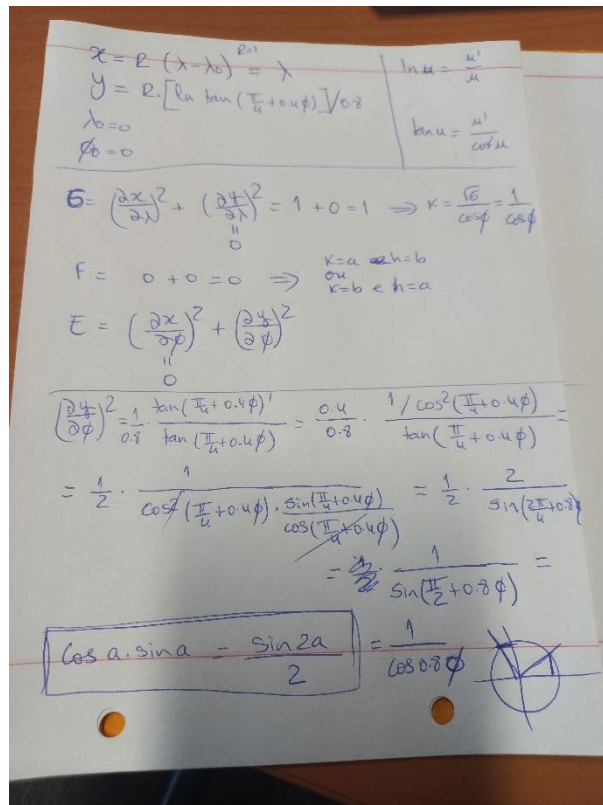 x = R (λ-λ₀) R=1 = λ
y = R.[ln tan(π/4 + 0.4φ)]/0.8
λ₀=0
φ₀=0
ln u = u'/u
tan u = u'/cos²u
G = (∂x/∂λ)² + (∂y/∂λ)² = 1 + 0 = 1 ⇒ K = √G/cosφ = 1/cosφ
||
0
F = 0 + 0 = 0 ⇒ K=a e h=b
ou
K=b e h=a
E = (∂x/∂φ)² + (∂y/∂φ)²
||
0
(∂y/∂φ)² = 1/0.8 · tan(π/4+0.4φ)'/tan(π/4+0.4φ) = 0.4/0.8 · 1/cos²(π/4+0.4φ)/tan(π/4+0.4φ) =
= 1/2 · 1/cos²(π/4+0.4φ)·sin(π/4+0.4φ)/cos(π/4+0.4φ) = 1/2 · 2/sin(2π/4+0.8φ)
= · 1/sin(π/2+0.8φ) =
cos a. sin a = sin 2a/2
= 1/cos 0.8φ